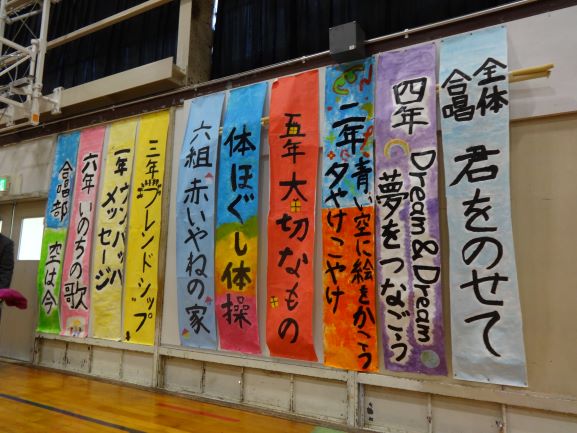 全体
合唱
君をのせて
四年
Dream&Dream
夢をつなごう
二年
青い空に絵をかこう
夕やけこやけ
五年 大切なもの
体ほぐし体操
六組 赤いやねの家
三年 フレンドシップ
一年 ウンパッパ
メッセージ
六年 いのちの歌
合唱部 空は今